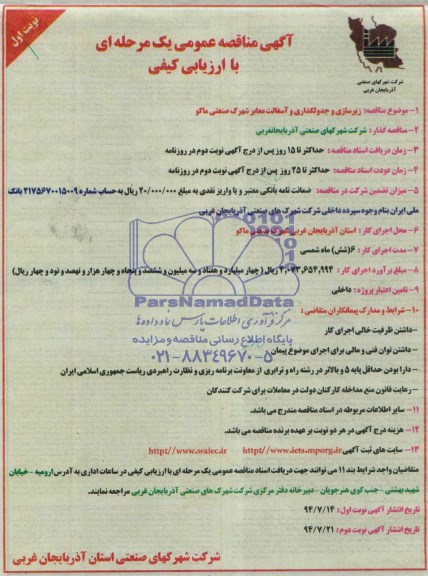 نوبت اول
آگهی مناقصه عمومی یک مرحله ای
با ارزیابی کیفی
شرکت شهرکهای صنعتی
آذربایجان غربی
۱- موضوع مناقصه: زیرسازی و جدولگذاری و آسفالت معابر شهرک صنعتی ماکو
۲- مناقصه گذار: شرکت شهرکهای صنعتی آذربایجانغربی
۳- زمان دریافت اسناد مناقصه: حداکثر تا ۱۵ روز پس از درج آگهی نوبت دوم در روزنامه
۴- زمان عودت اسناد مناقصه: حداکثر تا ۲۵ روز پس از درج آگهی نوبت دوم در روزنامه
۵- میزان تضمین شرکت در مناقصه: ضمانت نامه بانکی معتبر و یا واریز نقدی به مبلغ ۲۰/۰۰۰/۰۰۰ ریال به حساب شماره ۲۱۷۵۶۷۰۰۱۵۰۰۹ بانک
ملی ایران بنام وجوه سپرده داخلی شرکت شهرک های صنعتی آذربایجان غربی
۶- محل اجرای کار: استان آذربایجان غربی شهرک صنعتی ماکو
۷- مدت اجرای کار: ۶(شش) ماه شمسی
۸- مبلغ برآورد اجرای کار: ۴,۰۷۳,۶۵۴,۹۹۴ ریال (چهار میلیارد و هفتاد و سه میلیون و ششصد و پنجاه و چهار هزار و نهصد و نود و چهار ریال)
۹- تامین اعتبار پروژه: داخلی
۱۰- شرایط و مدارک پیمانکاران متقاضی:
-داشتن ظرفیت خالی اجرای کار
- داشتن توان فنی و مالی برای اجرای موضوع پیمان
- دارا بودن حداقل پایه ۵ و بالاتر در رشته راه و ترابری از معاونت برنامه ریزی و نظارت راهبردی ریاست جمهوری اسلامی ایران
- رعایت قانون منع مداخله کارکنان دولت در معاملات برای شرکت کنندگان
۱۱- سایر اطلاعات مربوطه در اسناد مناقصه مندرج می باشد.
۱۲- هزینه درج آگهی در هر دو نوبت بر عهده برنده مناقصه می باشد.
۱۳- سایت های ثبت آگهی http://www.iets.mporg.ir http://www.waiec.ir
متقاضیان واجد شرایط بند ۱۱ می توانند جهت دریافت اسناد مناقصه عمومی یک مرحله ای با ارزیابی کیفی در ساعات اداری به آدرس ارومیه - خیابان
شهید بهشتی - جنب کوی هنرجویان - دبیرخانه دفتر مرکزی شرکت شهرک های صنعتی آذربایجان غربی مراجعه نمایند.
تاریخ انتشار آگهی نوبت اول: ۹۴/۷/۱۴
تاریخ انتشار آگهی نوبت دوم: ۹۴/۷/۲۱
شرکت شهرکهای صنعتی استان آذربایجان غربی
ParsNamadData
مرکز فرآوری اطلاعات پارس نماد داده ها
پایگاه اطلاع رسانی مناقصه و مزایده
۰۲۱-۸۸۳۴۹۶۷۰-۵